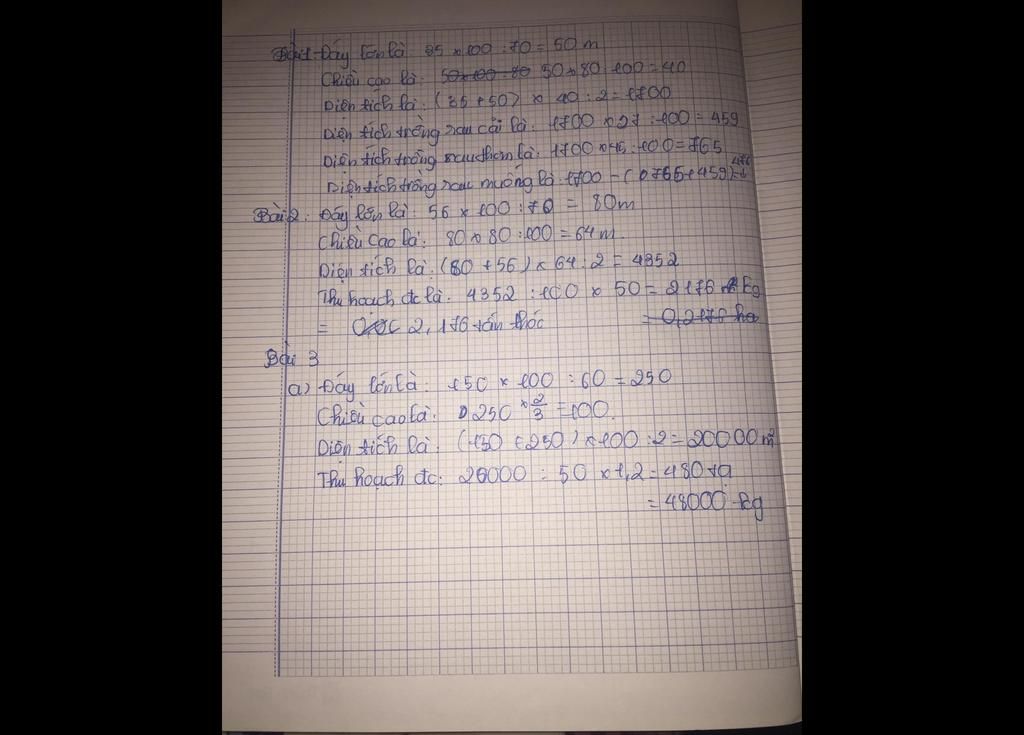 Bài 1. Đáy lớn là: 35 x 100 : 70 = 50 m
Chiều cao là: 50 x 100 : 80 50 x 80 : 100 = 40
Diện tích là: (35 + 50) x 40 : 2 = 1700
Diện tích trồng rau cải là: 1700 x 27 : 100 = 459
Diện tích trồng rau thơm là: 1700 x 45 : 100 = 765
Diện tích trồng rau muống là: 1700 - (765 + 459) = 476
Bài 2: Đáy lớn là: 56 x 100 : 70 = 80m
Chiều cao là: 80 x 80 : 100 = 64 m.
Diện tích là: (80 + 56) x 64 : 2 = 4352
Thu hoạch đc là: 4352 : 100 x 50 = 2176 kg
= 2,176 tấn thóc = 0,2176 ha
Bài 3
a) Đáy lớn là: 150 x 100 : 60 = 250
Chiều cao là: 250 x 2/3 = 100.
Diện tích là: (150 + 250) x 100 : 2 = 20000 m²
Thu hoạch đc: 20000 : 50 x 1,2 = 480 tạ
= 48000 kg